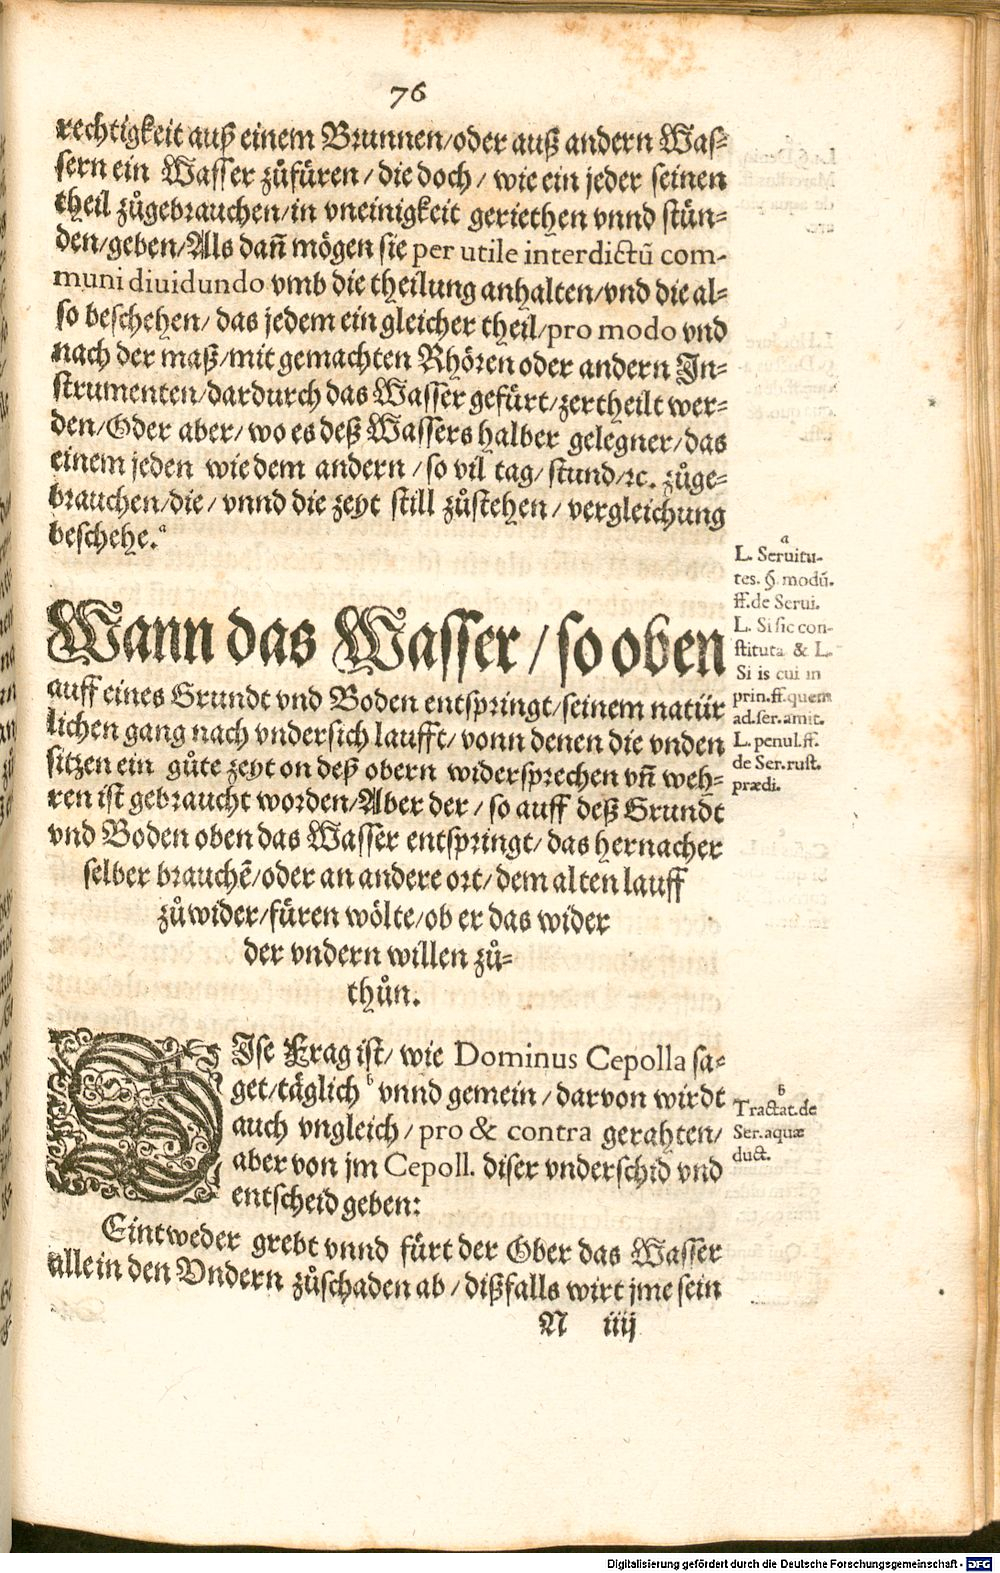 76
rechtigkeit auß einem Brunnen/oder auß andern Was-
sern ein Wasser zůfüren/ die doch/ wie ein jeder seinen
theil zůgebrauchen/in vneinigkeit geriethen vnnd stün-
den/geben/Als dañ mögen sie per utile interdictũ com-
muni diuidundo vmb die theilung anhalten/vnd die al-
so beschehen/ das jedem ein gleicher theil/pro modo vnd
nach der maß/mit gemachten Rhören oder andern In-
strumenten/dardurch das Wasser gefürt/zertheilt wer-
den/Oder aber/ wo es deß Wassers halber gelegner/das
einem jeden wie dem andern/so vil tag/ stund/ꝛc. zůge-
brauchen/die/ vnnd die zeyt still zůstehen/ vergleichung
beschehe.ᵃ
a
L. Seruitu-
tes. §. modũ.
ff. de Serui.
L. Si sic con-
stituta & L.
Si is cui in
prin. ff. quem
ad. ser. amit.
L. penul. ff.
de Ser. rust.
prædi.
Wann das Wasser/ so oben
auff eines Grundt vnd Boden entspringt/seinem natür
lichen gang nach vndersich laufft/ vonn denen die vnden
sitzen ein gůte zeyt on deß obern widersprechen vñ weh-
ren ist gebraucht worden/Aber der/ so auff deß Grundt
vnd Boden oben das Wasser entspringt/ das hernacher
selber brauchẽ/oder an andere ort/ dem alten lauff
zůwider/füren wölte/ob er das wider
der vndern willen zů-
thůn.
DIse Frag ist/ wie Dominus Cepolla sa-
get/täglich ᵇ vnnd gemein/ darvon wirdt
auch vngleich/ pro & contra gerahten/
aber von jm Cepoll. diser vnderschid vnd
entscheid geben:
b
Tractat. de
Ser. aquæ
duct.
Eintweder grebt vnnd fürt der Ober das Wasser
allein den Vndern zůschaden ab/ dißfalls wirt jme sein
N iiij
Digitalisierung gefördert durch die Deutsche Forschungsgemeinschaft - DFG